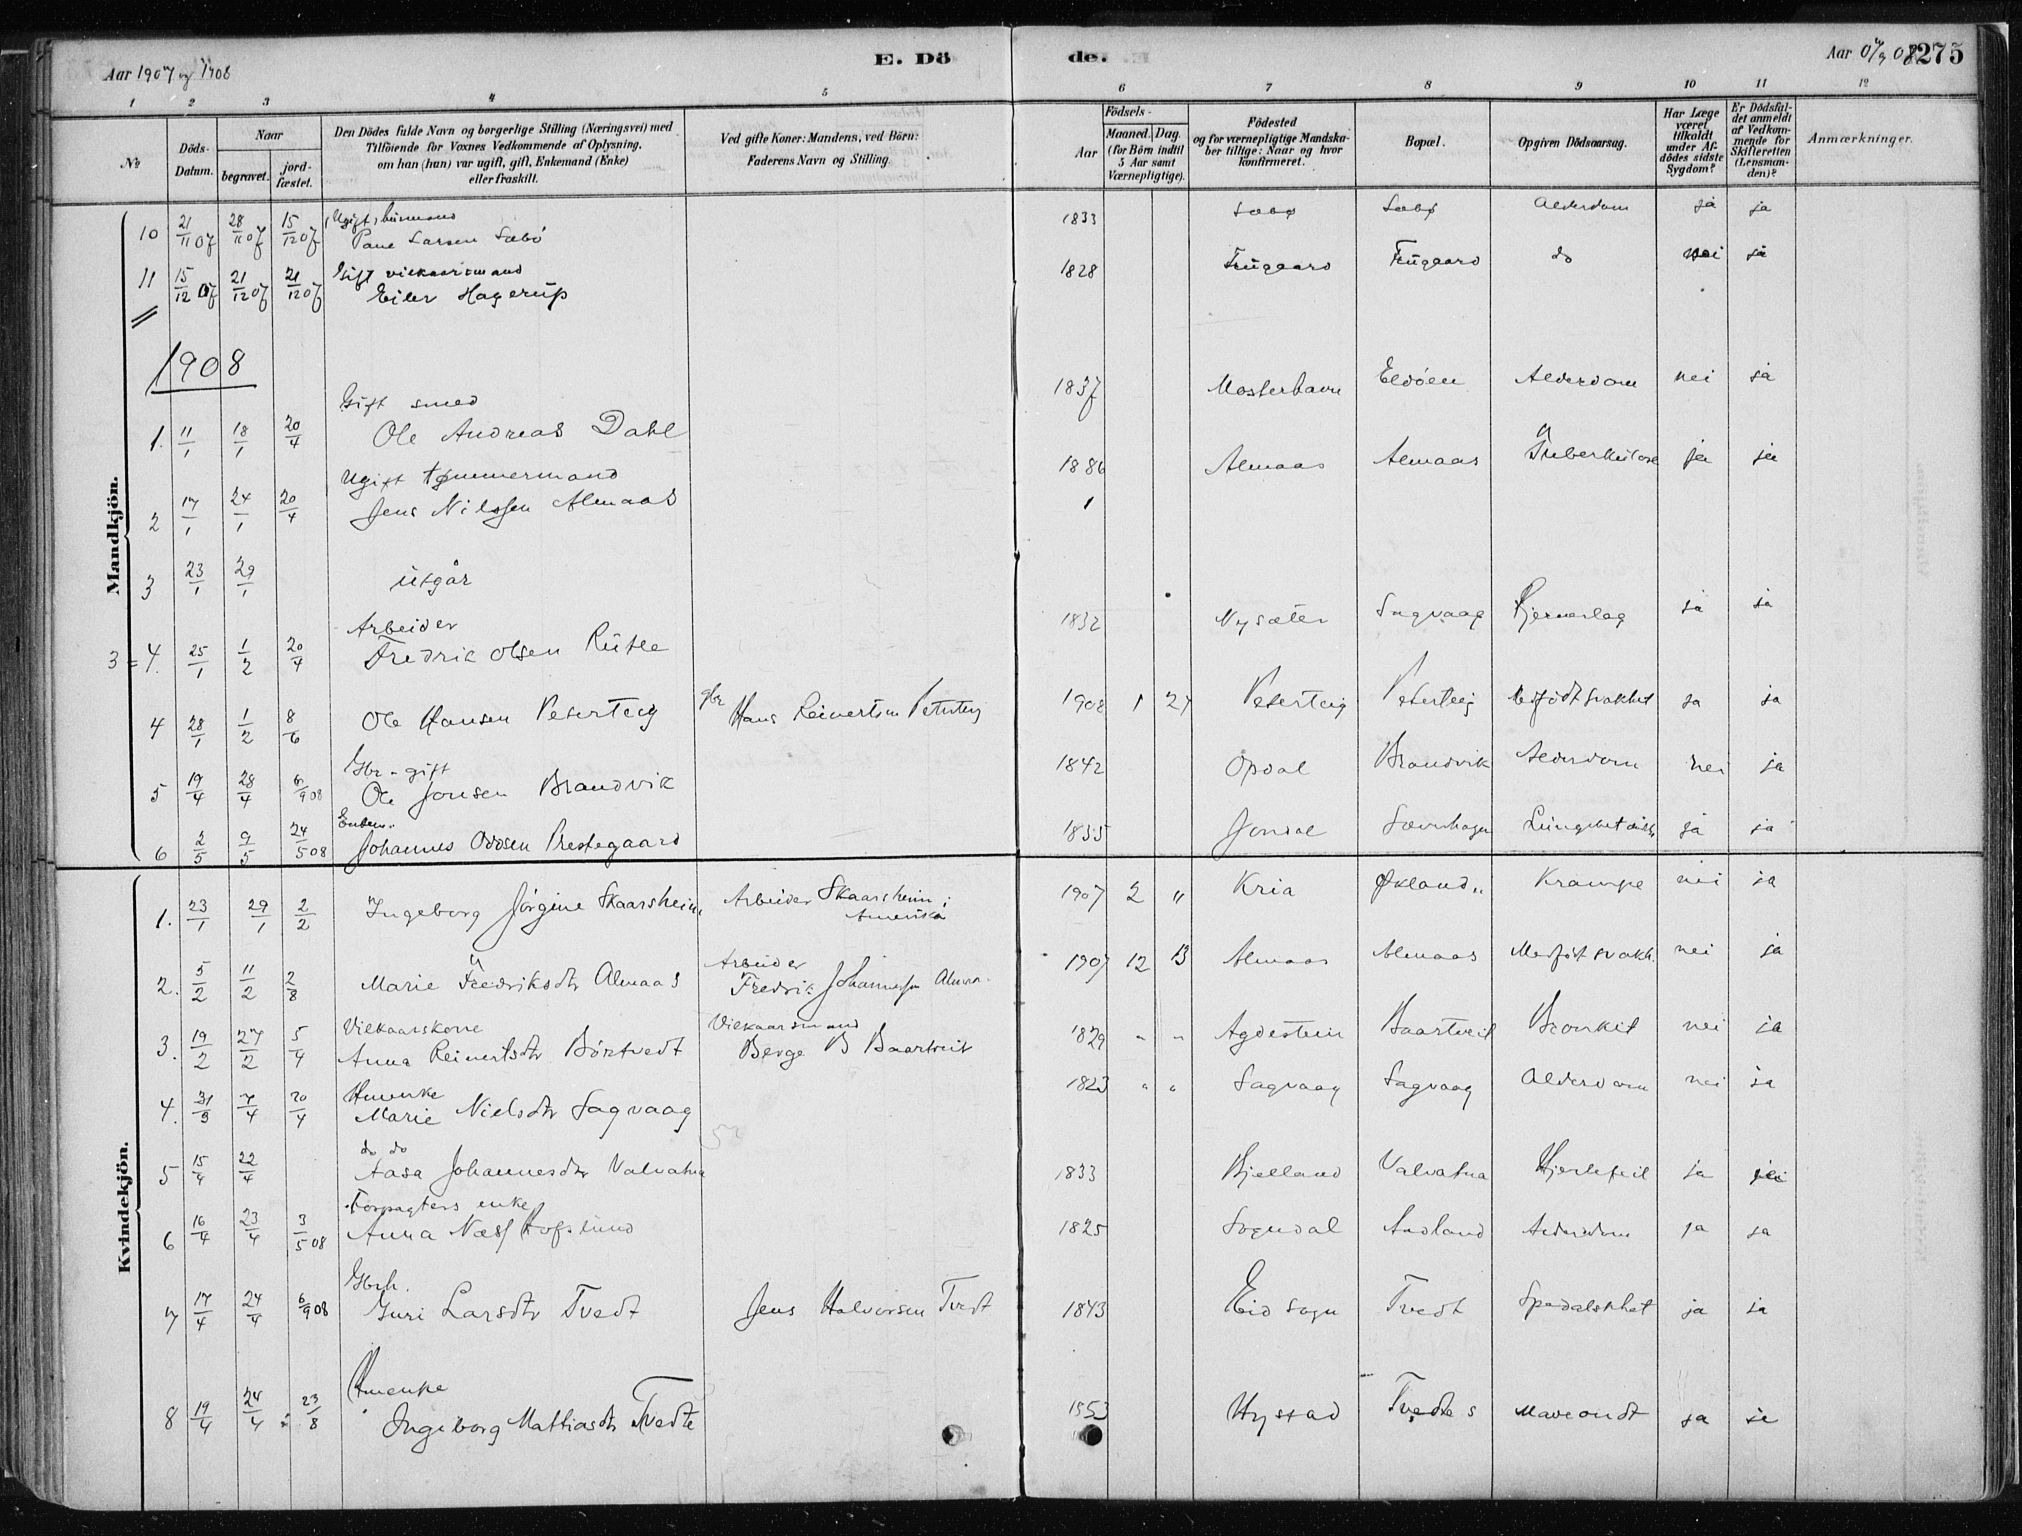 Aar 1907 og 1908
E. Dö
de.
Aar 07 og 08
275
1 2 3 4 5 6 7 8 9 10 11 12
No
Döds-Datum.
Naar
begravet.
jord-fæstet.
Den Dödes fulde Navn og borgerlige Stilling (Næringsvei) med
Tilföiende for Voxnes Vedkommende af Oplysning,
om han (hun) var ugift, gift, Enkemand (Enke)
eller fraskilt.
Ved gifte Koner: Mandens, ved Börn:
Faderens Navn og Stilling.
Födsels-
Aar
Maaned. Dag.
(for Börn indtil
5 Aar samt
Værnepligtige).
Födested
og for værnepligtige Mandska-
ber tillige: Naar og hvor
konfirmeret.
Bopæl.
Opgiven Dödsaarsag.
Har Læge
været
tilkaldt
under Af-
dödes sidste
Sygdom?
Er Dödsfal-
det anmeldt
af Vedkom-
mende for
Skifteretten
(Lensman-
den)?
Anmærkninger.
Mandkjön.
Ugift husmand
10 21/11 07 28/11 07 15/12 07 Larsen Sæbø 1833 Sæbø Sæbø Alderdom ja ja
Gift vilkaarsmand
11 15/12 07 21/12 07 21/12 07 Eiler Hagerup 1828 Trugaard Trugaard do nei ja
1908
Gift smed
1. 11/1 18/1 20/4 Ole Andreas Dahl 1837 Mosterhavn Eldöen Alderdom nei ja
Ugift tømmermand
2 17/1 24/1 20/4 Jens Nilssen Almaas 1886 Almaas Almaas Tuberkulose ja ja
3 23/1 29/1 utgår
Arbeider
3 = 4. 25/1 1/2 20/4 Fredrik Olsen Rutle 1832 Nysæter Sagvaag Hjerneslag ja ja
4 28/1 1/2 8/6 Ole Hansen Peterteig gbr Hans Reinertsen Peterteig 1908 1 27 Peterteig Peterteig Medfødt svakhet ja ja
Gbr. gift
5 19/4 28/4 6/9 08 Ole Jonsen Brandvik 1842 Opdal Brandvik Alderdom nei ja
Enkem.
6 2/5 9/5 24/5 08 Johannes Oddsen Prestegaard 1835 Jondal Sævenhagen ja ja
Kvindekjön.
1. 23/1 29/1 2/2 Ingeborg Jørgine Skaarsheim Arbeider Skaarsheim i Amerika 1907 2 " Kria Økland Krampe nei ja
2. 5/2 11/2 2/8 Marie Fredriksdtr Almaas Arbeider Fredrik Johannessen Almaas 1907 12 13 Almaas Almaas Medfødt svakh. nei ja
Vilkaarskone Vilkaarsmand
3. 19/2 27/2 5/4 Anna Reinertsdtr Børtvedt Berge B Baartveit 1829 " " Agdestein Baartveit Bronkit nei ja
Huenke
4. 31/3 7/4 20/4 Marie Nielsdtr Sagvaag 1823 " " Sagvaag Sagvaag Alderdom nei ja
do do
5 15/4 22/4 Aasa Johannesdtr Valvatna 1833 Kjelland Valvatna Hjertefeil ja
Forpagters enke
6 16/4 23/4 3/5 08 Anna Næss Hofslund 1825 Sogndal Andland Alderdom ja ja
Gbrh.
7 17/4 24/4 6/9 08 Guri Larsdtr Tvedt Jens Halvorsen Tvedt 1843 Eid sogn Tvedt Spedalskhet ja ja
Huenke
8 19/4 24/4 23/8 Ingeborg Mathiasdtr Tvedte 1853 Hystad Tvedte s Maveondt ja ja